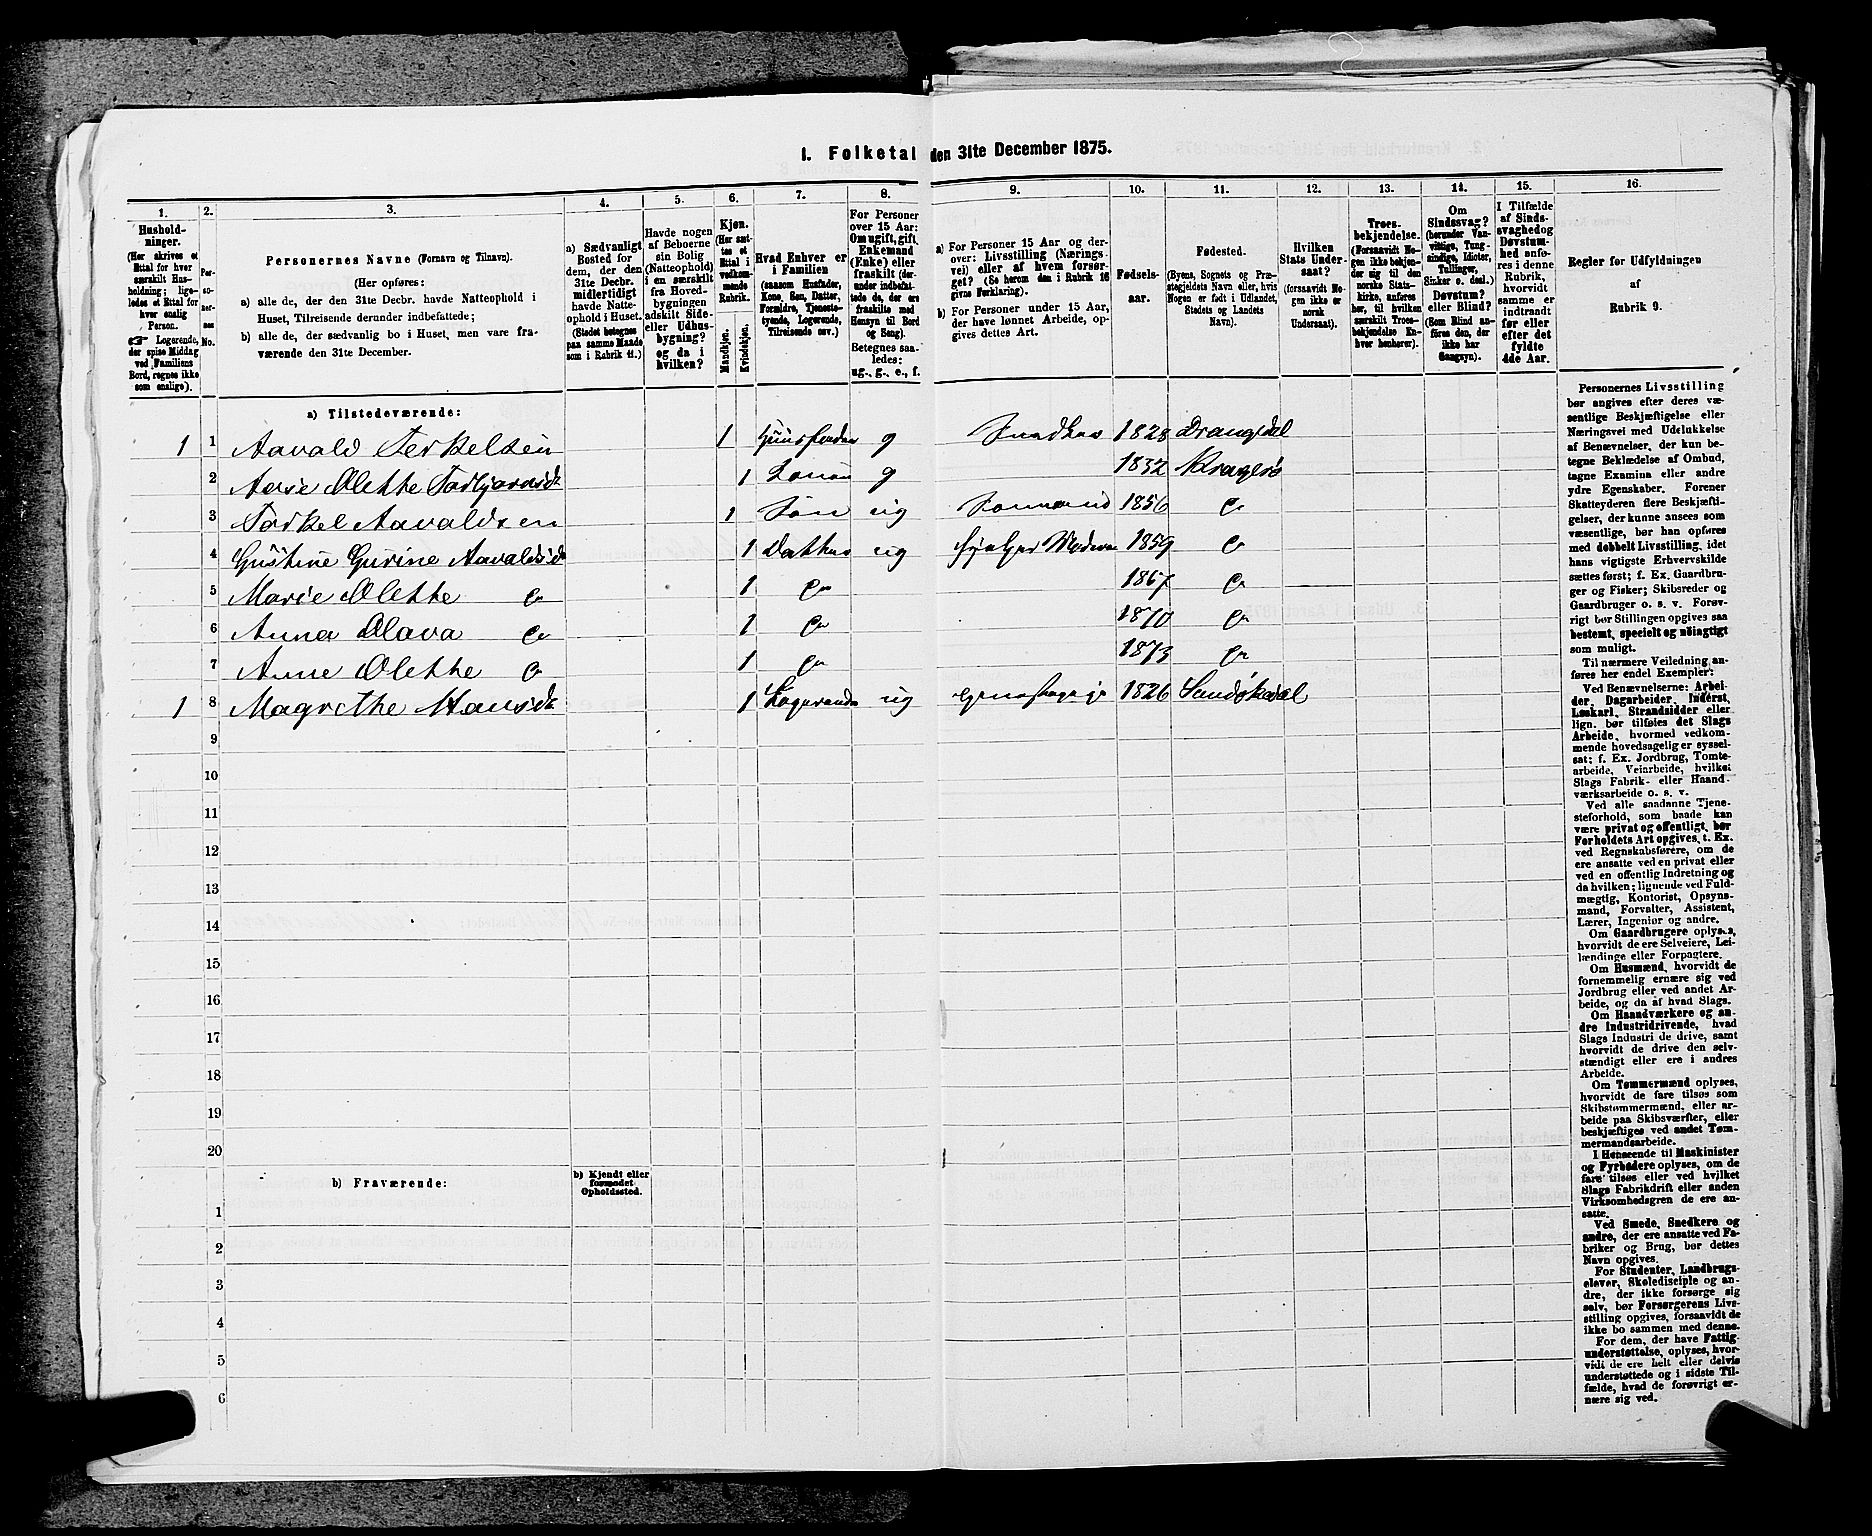 I. Folketal den 31te December 1875.
1. 2. 3. 4. 5. 6. 7. 8. 9. 10. 11. 12. 13. 14. 15. 16.
Hushold-
ninger.
(Her skrives et
Ettal for hver
særskilt Hus-
holdning; lige-
ledes et Ettal for
hver enslig
Person.
☞ Logerende,
der spise Middag
ved Familiens
Bord, regnes ikke
som enslige).
Per-
so-
ner-
nes
No.
Personernes Navne (Fornavn og Tilnavn).
(Her opføres:
a) alle de, der den 31te Decbr. havde Natteophold i
Huset, Tilreisende derunder indbefattede;
b) alle de, der sædvanlig bo i Huset, men vare fra-
værende den 31te December.
a) Sædvanligt
Bosted for
dem, der den
31te Decbr.
midlertidigt
havde Natte-
ophold i Huset.
(Stedet betegnes
paa samme Maade
som i Rubrik 11.)
Havde nogen
af Beboerne
sin Bolig
(Natteophold)
i en særskilt
fra Hoved-
bygningen
adskilt Side-
eller Udhus-
bygning?
og da i
hvilken?
Kjøn.
(Her sæt-
tes et
Ettal i
vedkom-
mende
Rubrik.
Mandkjøn.
Kvindekjøn.
Hvad Enhver er
i Familien
(saasom Husfader,
Kone, Søn, Datter,
Forældre, Tjeneste-
tyende, Logerende,
Tilreisende osv.)
For Personer
over 15 Aar:
Om ugift, gift,
Enkemand
(Enke) eller
fraskilt (der-
under indbefat-
tede de, der ere
fraskilte med
Hensyn til Bord
og Seng).
Betegnes saa-
ledes:
ug., g., e., f.
a) For Personer 15 Aar og der-
over: Livsstilling (Nærings-
vei) eller af hvem forsør-
get? (Se herom den i Rubrik 16
givne Forklaring).
b) For Personer under 15 Aar,
der have lønnet Arbeide, op-
gives dettes Art.
Fødsels-
aar.
Fødested.
(Byens, Sognets og Præ-
stegjeldets Navn eller, hvis
Nogen er født i Udlandet,
Stedets og Landets
Navn).
Hvilken
Stats Under-
saat?
(forsaavidt No-
gen ikke er
norsk
Undersaat).
Troes-
bekjendelse.
(Forsaavidt No-
gen ikke bekjen-
der sig til den
norske Stats-
kirke, anføres
her, til hvilken
særskilt Troes-
bekjendelse En-
hver henhører).
Om
Sindssvag?
(herunder Van-
vittige, Tung-
sindige, Idioter,
Tullinger,
Sinker o. desl.)
Døvstum?
eller Blind?
(Som Blind an-
føres den, der
ikke har
Gangsyn).
I Tilfælde
af Sinds-
svaghed og
Døvstum-
hed anfø-
res i denne
Rubrik,
hvorvidt
samme er
indtraadt
før eller
efter det
fyldte
4de Aar.
Regler for Udfyldningen
af
Rubrik 9.
a) Tilstedeværende:
1 1 Aavald Terkelsen 1 Huusfader g Snedker 1828 Drangedal
2 Anne Olette Torbjørnsd 1 Konen g 1832 Kragerø
3 Torkel Aavaldsen 1 Søn ug Sømand 1856 do
4 Gustine Gurine Aavaldsd 1 Datter ug hjælper Moderen 1859 do
5 Marie Olette do 1 do 1867 do
6 Anna Olava do 1 do 1870 do
7 Anne Olette do 1 do 1873 do
1 8 Magrethe Hansd 1 Logerende ug 1826 Sandøkedal
9
10
11
12
13
14
15
16
17
18
19
20
b) Fraværende:
b) Kjendt eller
formodet
Opholdssted.
1
2
3
4
5
6
Personernes Livsstilling
bør angives efter deres væ-
sentlige Beskjæftigelse eller
Næringsvei med Udelukkelse
af Benævnelser, der kun be-
tegne Beklædelse af Ombud,
tagne Examina eller andre
ydre Egenskaber. Forener
Skatteyderen flere Beskjæfti-
gelser, der kunne ansees som
væsentlige, bør han opføres
med dobbelt Livsstilling, idet
hans vigtigste Erhvervskilde
sættes først; f. Ex. Gaardbru-
ger og Fisker; Skibsreder og
Gaardbruger o. s. v. Forøv-
rigt bør Stillingen opgives saa
bestemt, specielt og nøiagtigt
som muligt.
Til nærmere Veiledning an-
føres her endel Exempler:
Ved Benævnelserne: Arbei-
der, Dagarbeider, Inderst,
Løskarl, Strandsidder eller
lign. bør tilføies det Slags
Arbeide, hvormed vedkom-
mende hovedsagelig er syssel-
sat; f. Ex. Jordbrug, Tomte-
arbeide, Veiarbeide, hvilket
Slags Fabrik- eller Haand-
værksarbeide o. s. v.
Ved alle saadanne Tjene-
steforhold, som baade kan
være privat og offentligt, bør
Forholdets Art opgives, t. Ex.
ved Regnskabsførere, om de
ere ansatte ved en privat eller
ved en offentlig Indretning og
da hvilken; lignende ved Fuld-
mægtig, Kontorist, Opsyns-
mand, Forvalter, Assistent,
Lærer, Ingeniør og andre.
Om Gaardbrugere oplyses,
hvorvidt de ere Selveiere, Lei-
lændinge eller Forpagtere.
Om Husmænd, hvorvidt de
fornemmelig ernære sig ved
Jordbrug eller ved andet Ar-
beide, og da af hvad Slags.
Om Haandværkere og an-
dre Industridrivende, hvad
Slags Industri de drive, samt
hvorvidt de drive den selv-
stændigt eller ere i andres
Arbeide.
Om Tømmermænd oplyses,
hvorvidt de fare tilsøs som
Skibstømmermænd, eller ar-
beide paa Skibsværfter, eller
beskjæftiges ved andet Tøm-
mermandsarbeide.
I Henseende til Maskinister
og Fyrbødere oplyses, om de
fare tilsøs eller ved hvilket
Slags Fabrikdrift eller anden
Virksomhedsgren de ere an-
satte.
Ved Smede, Snedkere og
andre, der ere ansatte ved Fa-
briker og Brug, bør dettes
Navn opgives.
For Studenter, Landbrugs-
elever, Skoledisciple og an-
dre, der ikke forsørge sig
selv, bør Forsørgerens Livs-
stilling opgives, forsaavidt de
ikke bo sammen med denne.
For dem, der have Fattig-
understøttelse, oplyses, hvor-
vidt de ere helt eller delvis
understøttede og i sidste Til-
fælde, hvad de forøvrigt er-
nære sig ved.